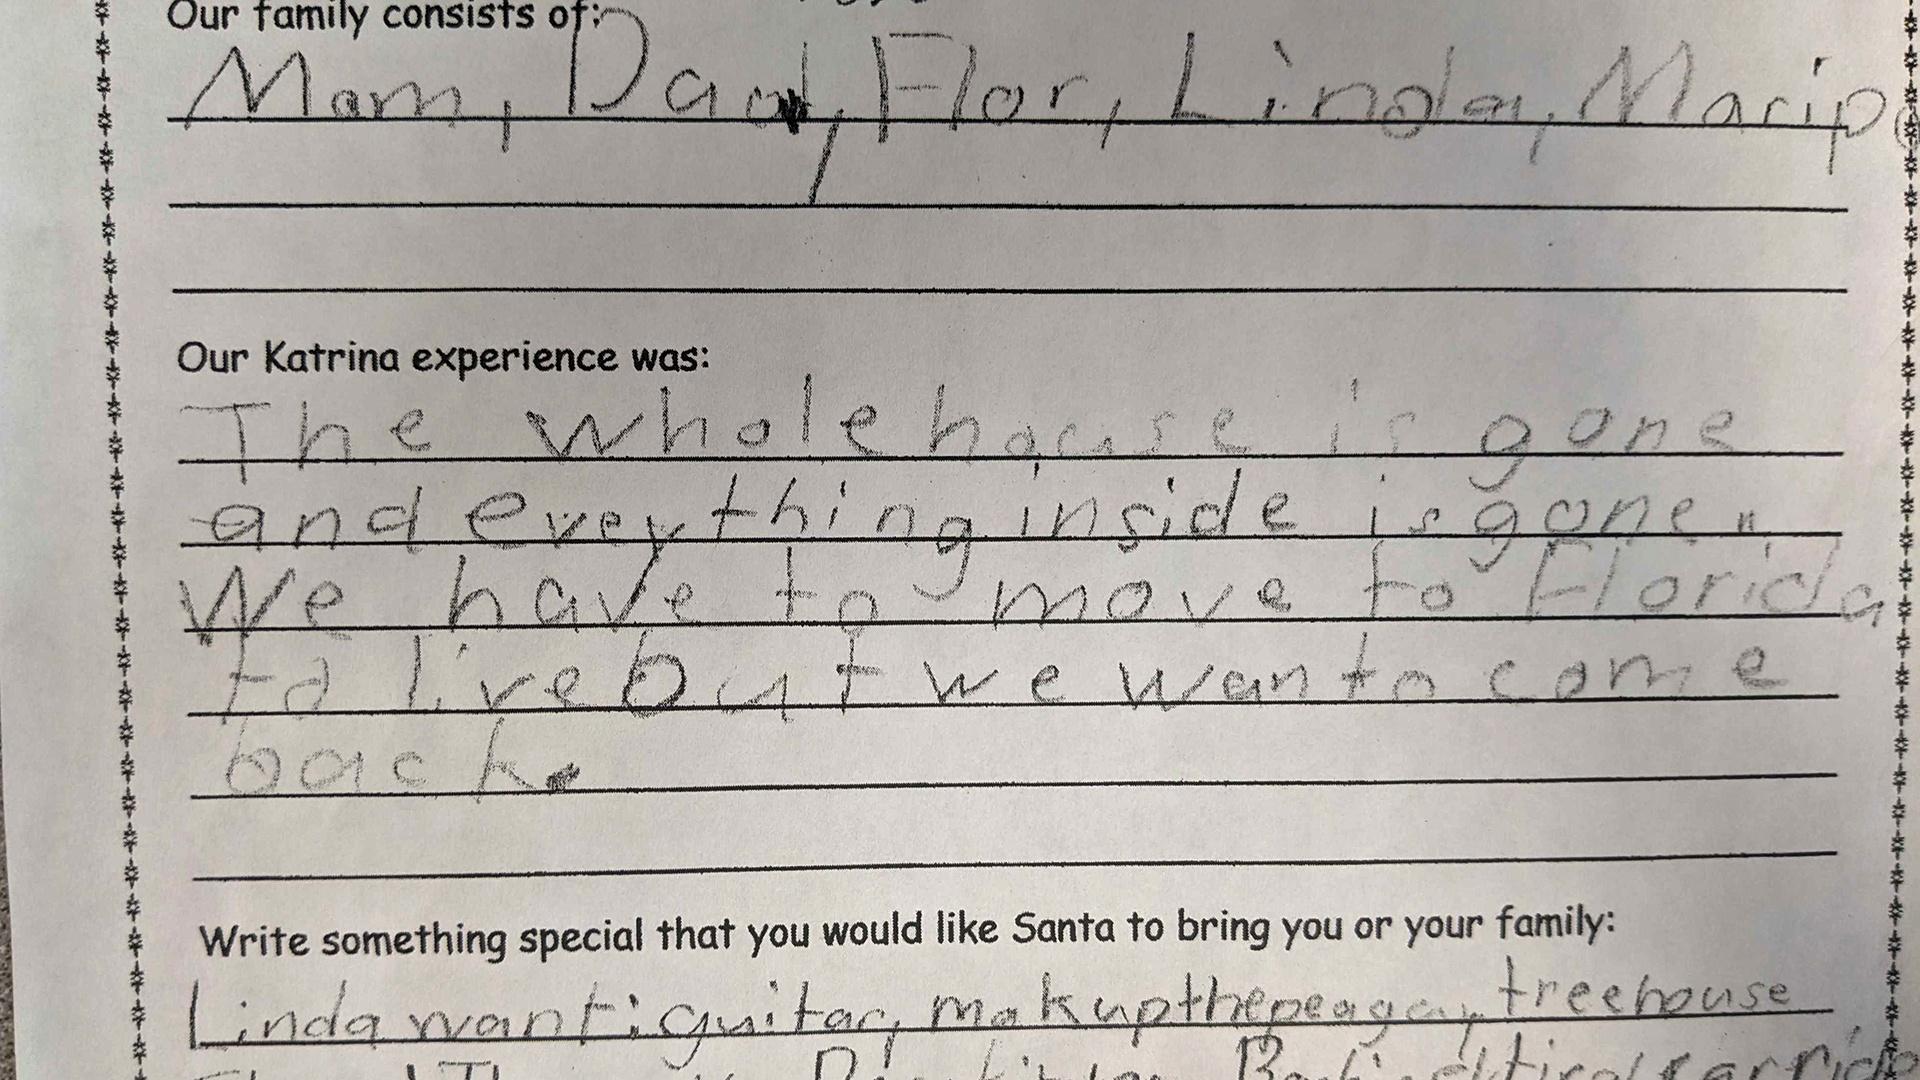 Our family consists of:
Mom, Dad, Flor, Linda, Maripo
Our Katrina experience was:
The whole house is gone
and eveything inside is gone.
We have to move to Florida
to live but we wanto come
back.
Write something special that you would like Santa to bring you or your family:
Linda want: guitar, makup treehouse